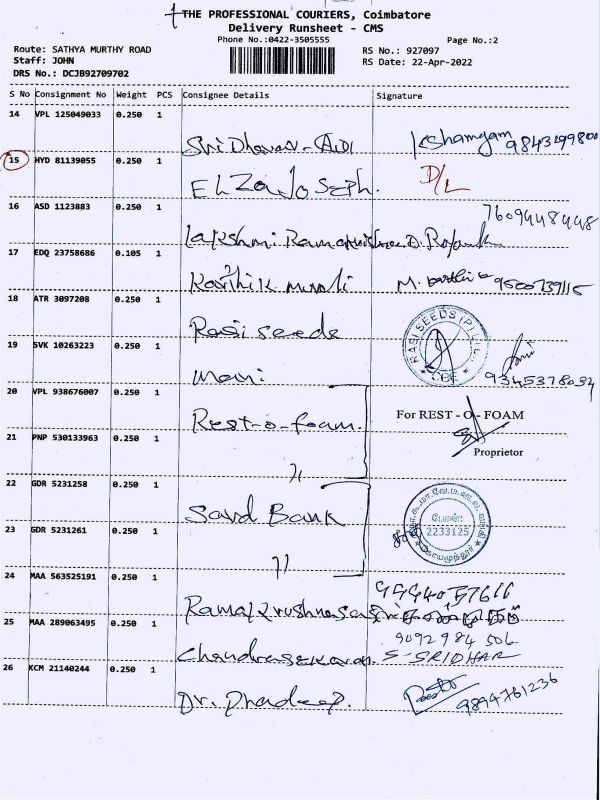 THE PROFESSIONAL COURIERS, Coimbatore
Delivery Runsheet - CMS
Phone No.:0422-3505555
Page No.:2
Route: SATHYA MURTHY ROAD
RS No.: 927097
Staff: JOHN
RS Date: 22-Apr-2022
DRS No.: DCJB92709702
S No Consignment No Weight PCS Consignee Details Signature
14 VPL 125049033 0.250 1
15 HYD 81139055 0.250 1
ELZA JOSEPH.
D/L
16 ASD 1123883 0.250 1
7609448448
17 EDQ 23758686 0.105 1
Karthik murali
M.
18 ATR 3097208 0.250 1
Rasi seeds
RASI SEEDS (P) LTD.
CBE
19 SVK 10263223 0.250 1
mani
9345378034
20 VPL 938676007 0.250 1
Rest-o-foam.
For REST - O - FOAM
21 PNP 530133963 0.250 1
Proprietor
22 GDR 5231258 0.250 1
Bank
போன்:
2233125
23 GDR 5231261 0.250 1
24 MAA 563525191 0.250 1
25 MAA 289063495 0.250 1
9092984506
Chandrasekaran.
S-SRIDHAR
26 KCM 21140244 0.250 1
Dr.
9894761236